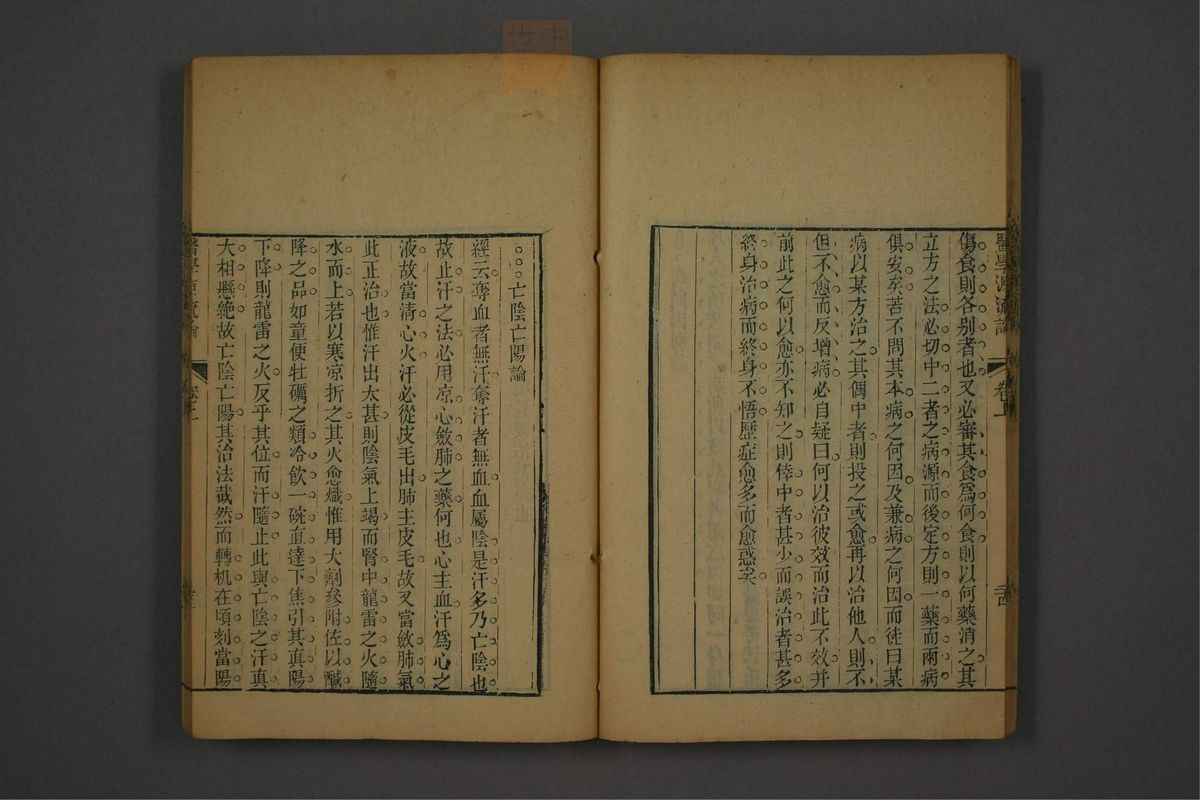 醫學源流論 卷上
傷食則各别者也又必審其食爲何食則以何藥消之其
立方之法必切中二者之病源而後定方則一藥而兩病
俱安矣若不問其本病之何因及兼病之何因而徒曰某
病以某方治之其偶中者則投之或愈再以治他人則不
但不愈而反增病必自疑曰何以治彼效而治此不效并
前此之何以愈亦不知之則倖中者甚少而誤治者甚多
終身治病而終身不悟歷症愈多而愈惑矣
亡陰亡陽論
經云奪血者無汗奪汗者無血血屬陰是汗多乃亡陰也
故止汗之法必用凉心斂肺之藥何也心主血汗爲心之
液故當清心火汗必從皮毛出肺主皮毛故又當斂肺氣
此正治也惟汗出太甚則陰氣上竭而腎中龍雷之火隨
水而上若以寒凉折之其火愈熾惟用大劑參附佐以鹹
降之品如童便牡礪之類冷飲一碗直達下焦引其真陽
下降則龍雷之火反乎其位而汗隨止此與亡陰之汗真
大相懸絶故亡陰亡陽其治法截然而轉机在頃刻當陽